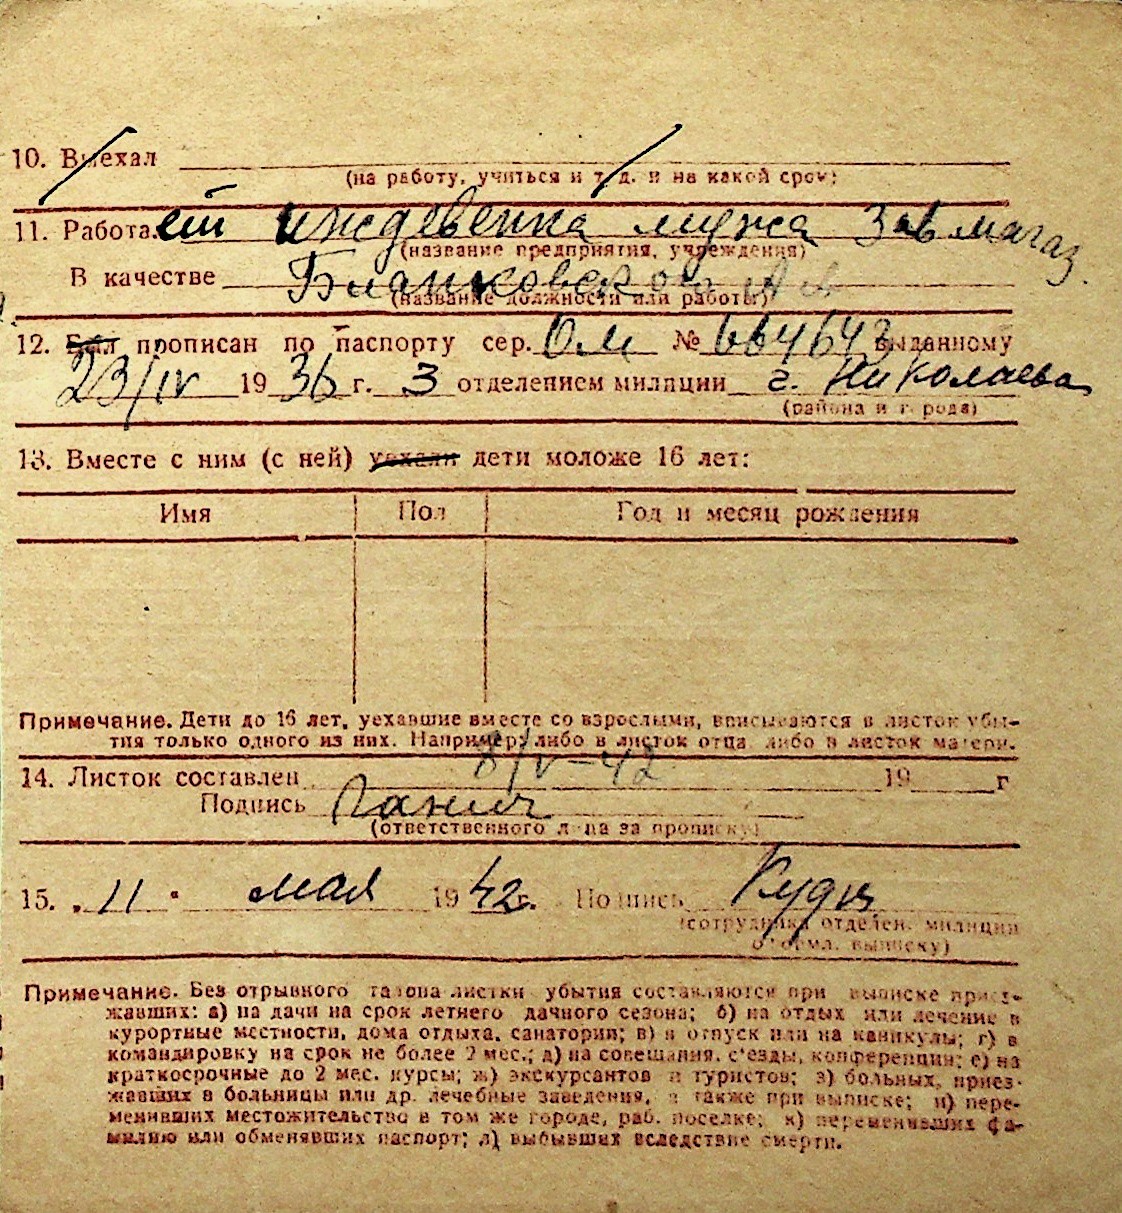 10. Выехал
(на работу, учиться и т. д. и на какой срок)
11. Работает иждевенка мужа Зав магаз.
(название предприятия, учреждения)
В качестве Бланковского А
(название должности или работы)
12. Был прописан по паспорту сер. ОМ № 664643 выданному
23/IV 1936 г. 3 отделением милиции г. Николаева
(района и города)
13. Вместе с ним (с ней) уехали дети моложе 16 лет:
Имя Пол Год и месяц рождения
Примечание. Дети до 16 лет, уехавшие вместе со взрослыми, вписываются в листок убы-
тия только одного из них. Например: либо в листок отца либо в листок матери.
14. Листок составлен 8/V-42 19 г
Подпись
(ответственного лица за прописку)
15. „11" мая 1942 г. Подпись
(сотрудника отделен. милиции
оформл. выписку)
Примечание. Без отрывного талона листки убытия составляются при выписке приез-
жавших: а) на дачи на срок летнего дачного сезона; б) на отдых или лечение в
курортные местности, дома отдыха, санатории; в) в отпуск или на каникулы; г) в
командировку на срок не более 2 мес.; д) на совещания, с'езды, конференции; е) на
краткосрочные до 2 мес. курсы; ж) экскурсантов и туристов; з) больных, приез-
жавших в больницы или др. лечебные заведения, а также при выписке; и) пере-
менивших местожительство в том же городе, раб. поселке; к) переменивших фа-
милию или обменявших паспорт; л) выбывших вследствие смерти.